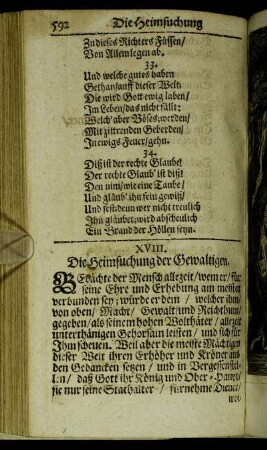 592 Die Heimsuchung
Zu dieses Richters Füssen/
Von Allem legen ab.
33.
Und welche gutes haben
Gethan/auff dieser Welt:
Die wird Gott ewig laben/
Im Leben/das nicht fällt:
Welch' aber Böses/werden/
Mit zittrenden Geberden/
In ewigs Feuer/gehn.
34.
Diß ist der rechte Glaube!
Der rechte Glaub' ist diß!
Den nim/wie eine Taube/
Und gläub' ihn fein gewiß/
Und fest: denn wer nicht treulich
Ihn gläubet; wird abscheulich
Ein Brand der Höllen seyn.
XVIII.
Die Heimsuchung der Gewaltigen.
der Mensch allezeit/wem er/für
seine Ehre und Erhebung am meisten
verbunden sey; würde er dem / welcher ihm/
von oben/ Macht/ Gewalt/und Reichthum/
gegeben/als seinem hohen Wolthäter/ allezeit
unterthänigen Gehorsam leisten / und sich für
Ihm scheuen. Weil aber die meiste Mächtigen
dieser Welt ihren Erhöher und Kröner aus
den Gedancken setzen / und in Vergessen stel-
len/ daß Gott ihr König und Ober-Haupt/
sie nur seine Stathalter / fürnehme Diener/